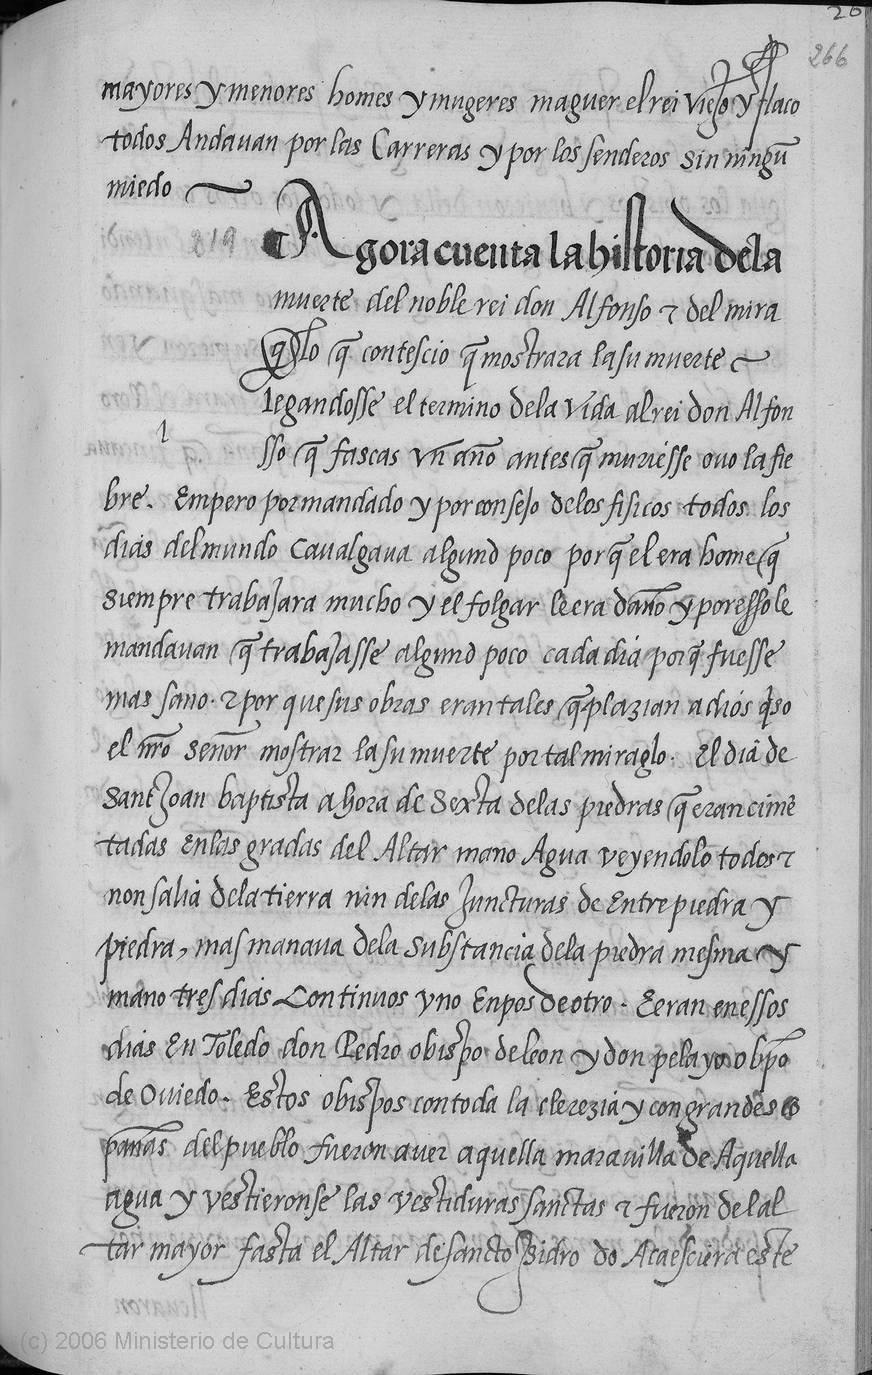 20
266
mayores y menores homes y mugeres maguer el rei viejo y flaco
todos Andavan por las Carreras y por los senderos sin ningũ
miedo
819
Agora cuenta la historia dela
muerte del noble rei don Alfonso & del mira
glo q̃ contescio q̃ mostrara la su muerte
legandosse el termino dela vida al rei don Alfon
1
sso q̃ fascas vñ año antes q̃ muriesse ovo la fie
bre. Empero por mandado y por consejo delos fisicos todos los
dias del mundo Cavalgava algund poco por q̃ el era home q̃
siempre trabajara mucho y el folgar le era daño y por esso le
mandavan q̃ trabajasse algund poco cada dia porq̃ fuesse
mas sano. & por que sus obras eran tales q̃ plazian a dios qiso
el nr̃o señor mostrar la su muerte por tal miraglo. El dia de
Sant Joan baptista a hora de Sexta delas piedras q̃ eran cimẽ
tadas Enlas gradas del Altar mano Agua veyendolo todos &
non salia dela tierra nin delas Juncturas de Entre piedra y
piedra, mas manava dela substancia dela piedra mesma y
mano tres dias Continuos uno Enpos de otro. E eran en essos
dias En Toledo don Pedro obispo de leon y don pelayo obp̃o
de Oviedo. Estos obispos con toda la clerezia y con grandes cõ
pañas del pueblo fueron a ver aquella maravilla de Aquella
agua y vestieronse las vestiduras sanctas & fueron del al
tar mayor fasta el Altar de sancto Isidro do Acaesciera este
llevaron
(c) 2006 Ministerio de Cultura